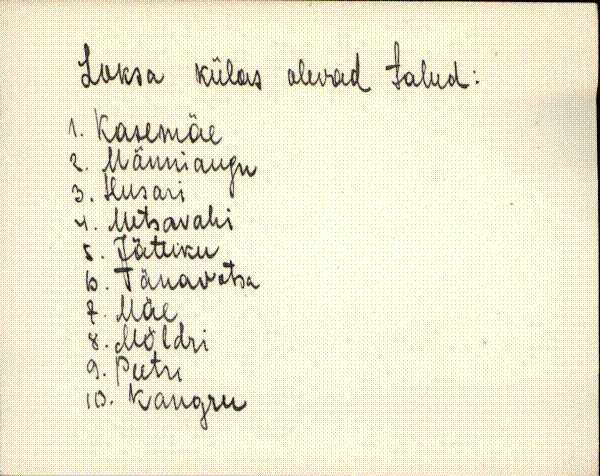 Loksa külas olevad talud:
1. Kasemäe
2. Männiaugu
3. Husari
4. Metsavahi
5. Jätuku
6. Tänavotsa
7. Mäe
8. Möldri
9. Peetri
10. Kangru